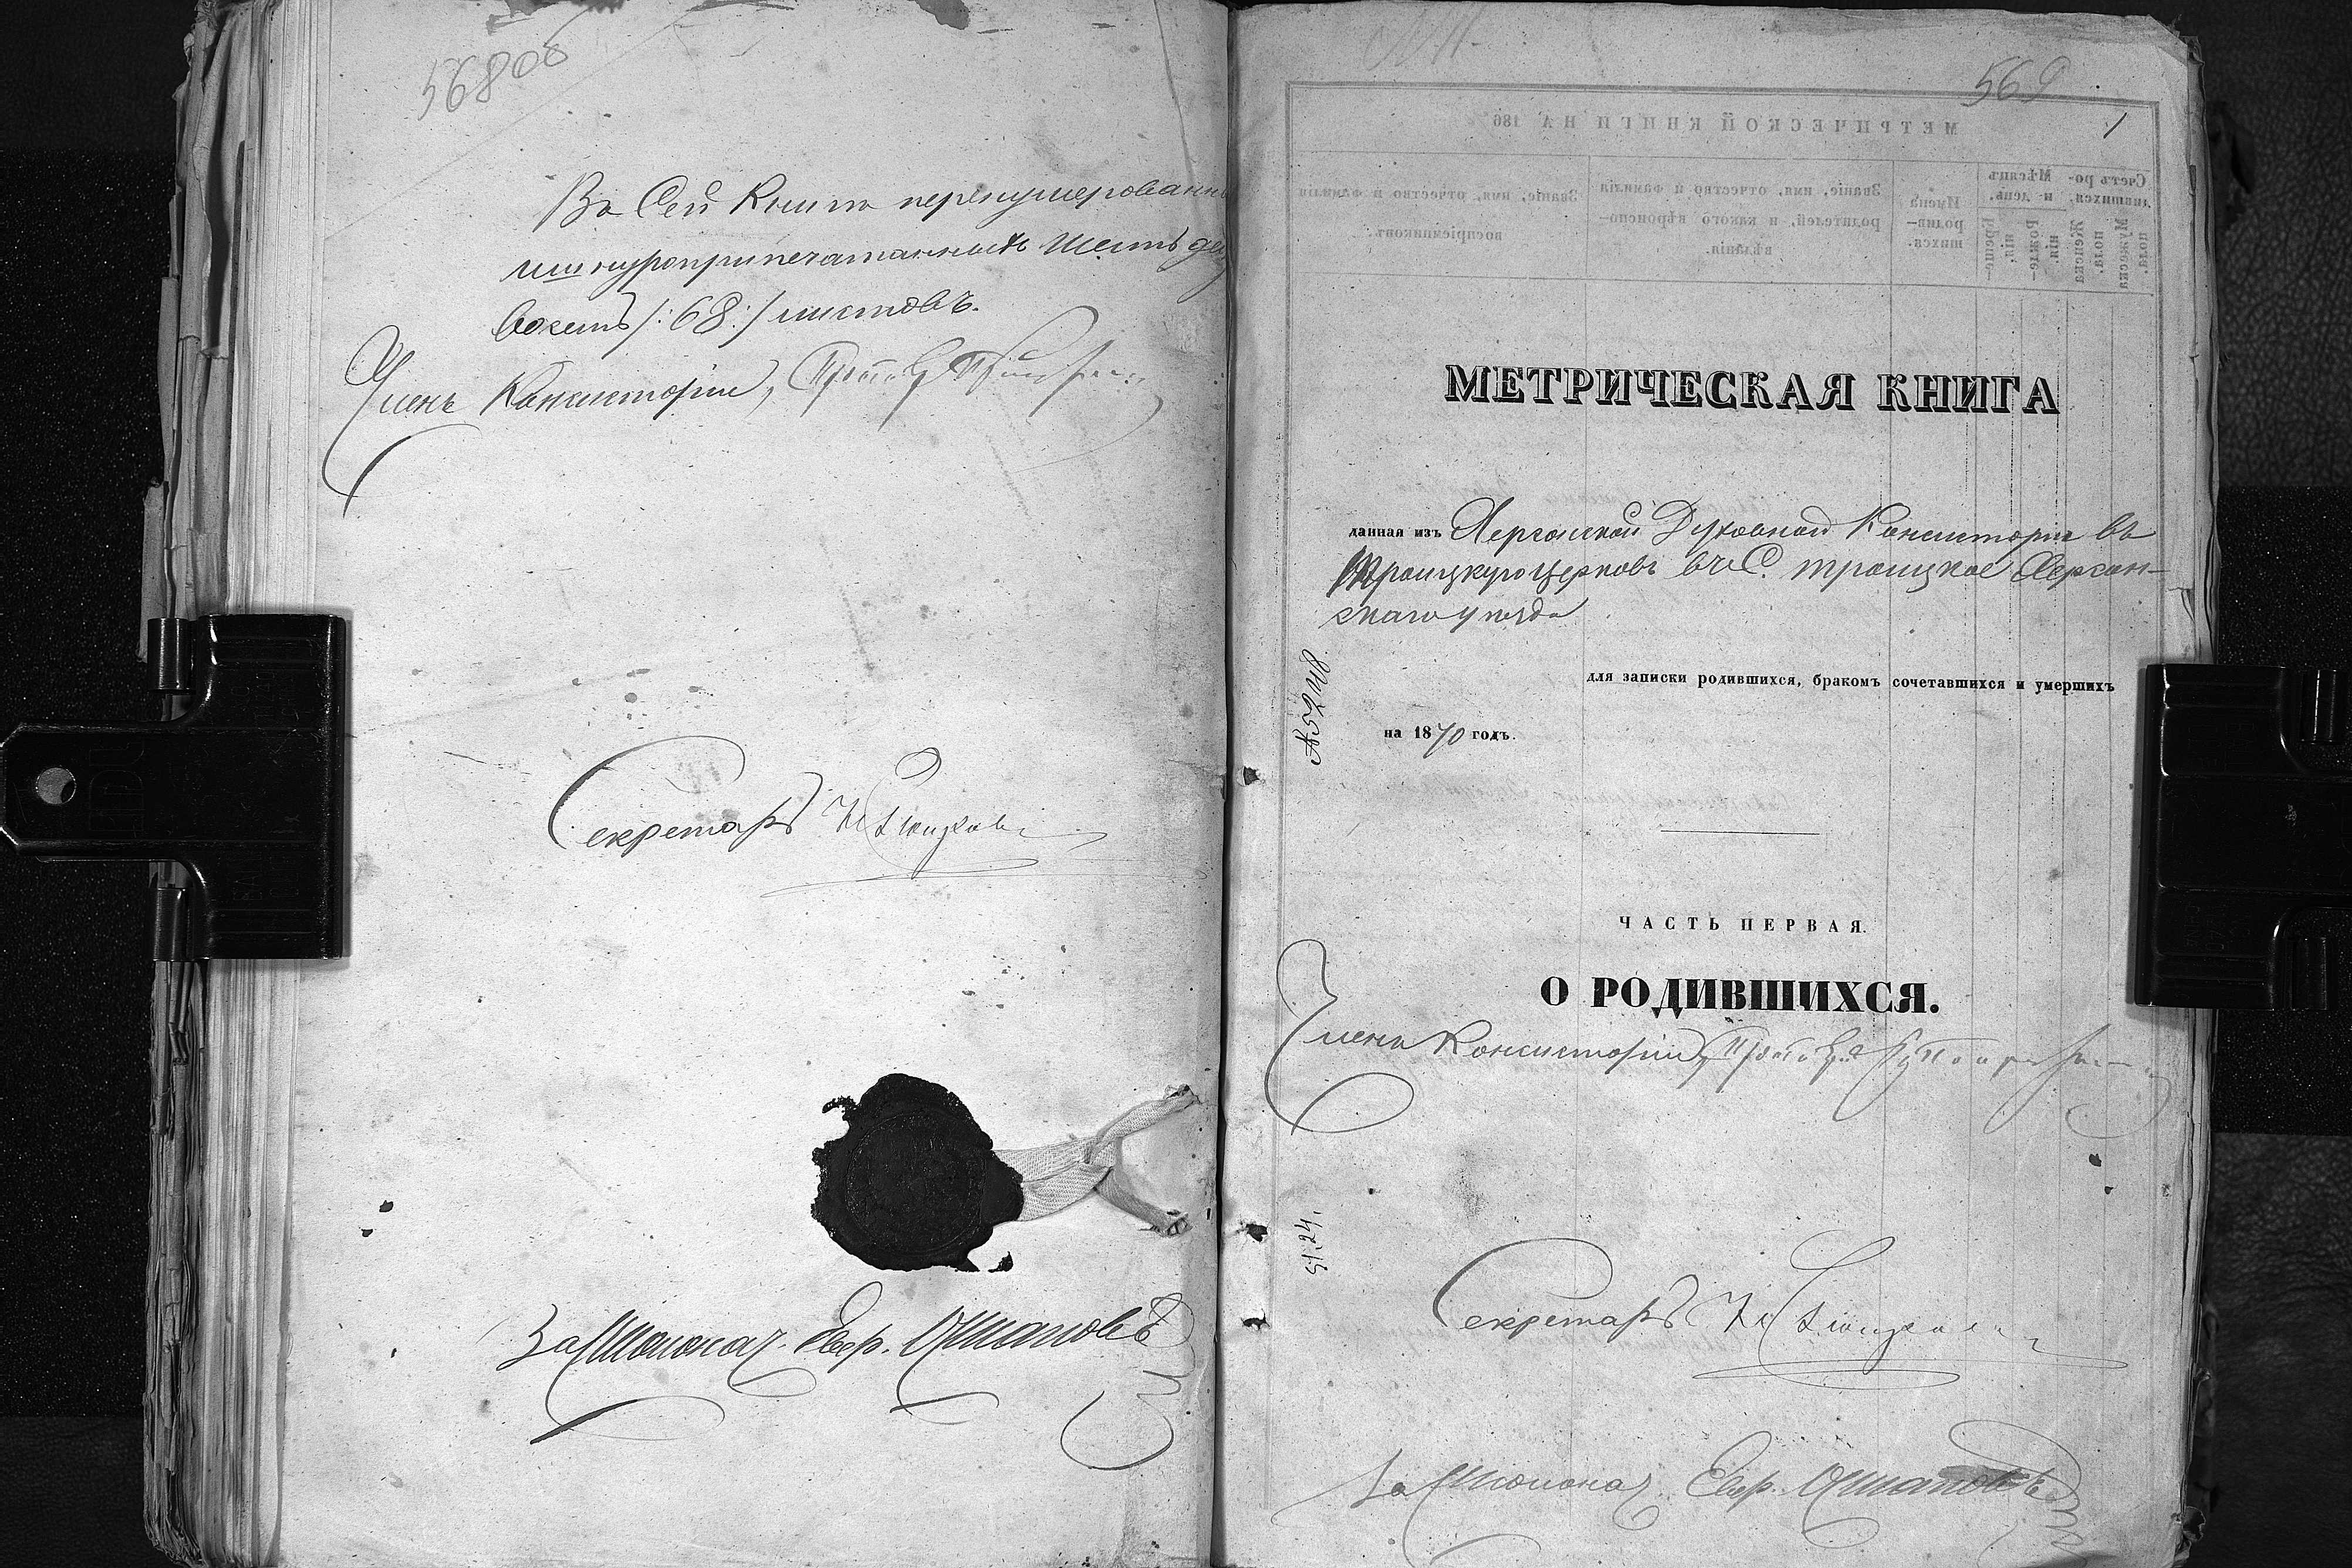 568 об
Въ Сей Книги перенумерованны
шнуроприпечатанныхъ шестьде
восемь /:68:/ листовъ.
Членъ Консисторіи, Протоіерей
Секретарь
За Столонач. Евф.
569
1
МЕТРИЧЕСКОЙ КНИГИ НА 186
Счетъ родившихся.
Мужеска пола.
Женска пола.
Мѣсяцъ и день.
Рожденія.
Крещенія.
Имена родившихся.
Званіе, имя, отчество и фамилія
родителей, и какого вѣроисповѣданія.
Званіе, имя, отчество и фамилія
воспріемниковъ.
МЕТРИЧЕСКАЯ КНИГА
данная изъ Херсонской Духовной Консисторіи въ
Троицкую церковь въ С. Троицкое Херсон-
скаго уѣзда
для записки родившихся, бракомъ сочетавшихся и умершихъ
на 1870 годъ.
ЧАСТЬ ПЕРВАЯ.
О РОДИВШИХСЯ.
Членъ Консисторіи, Протоіерей
Секретарь
За Столонач. Евф.